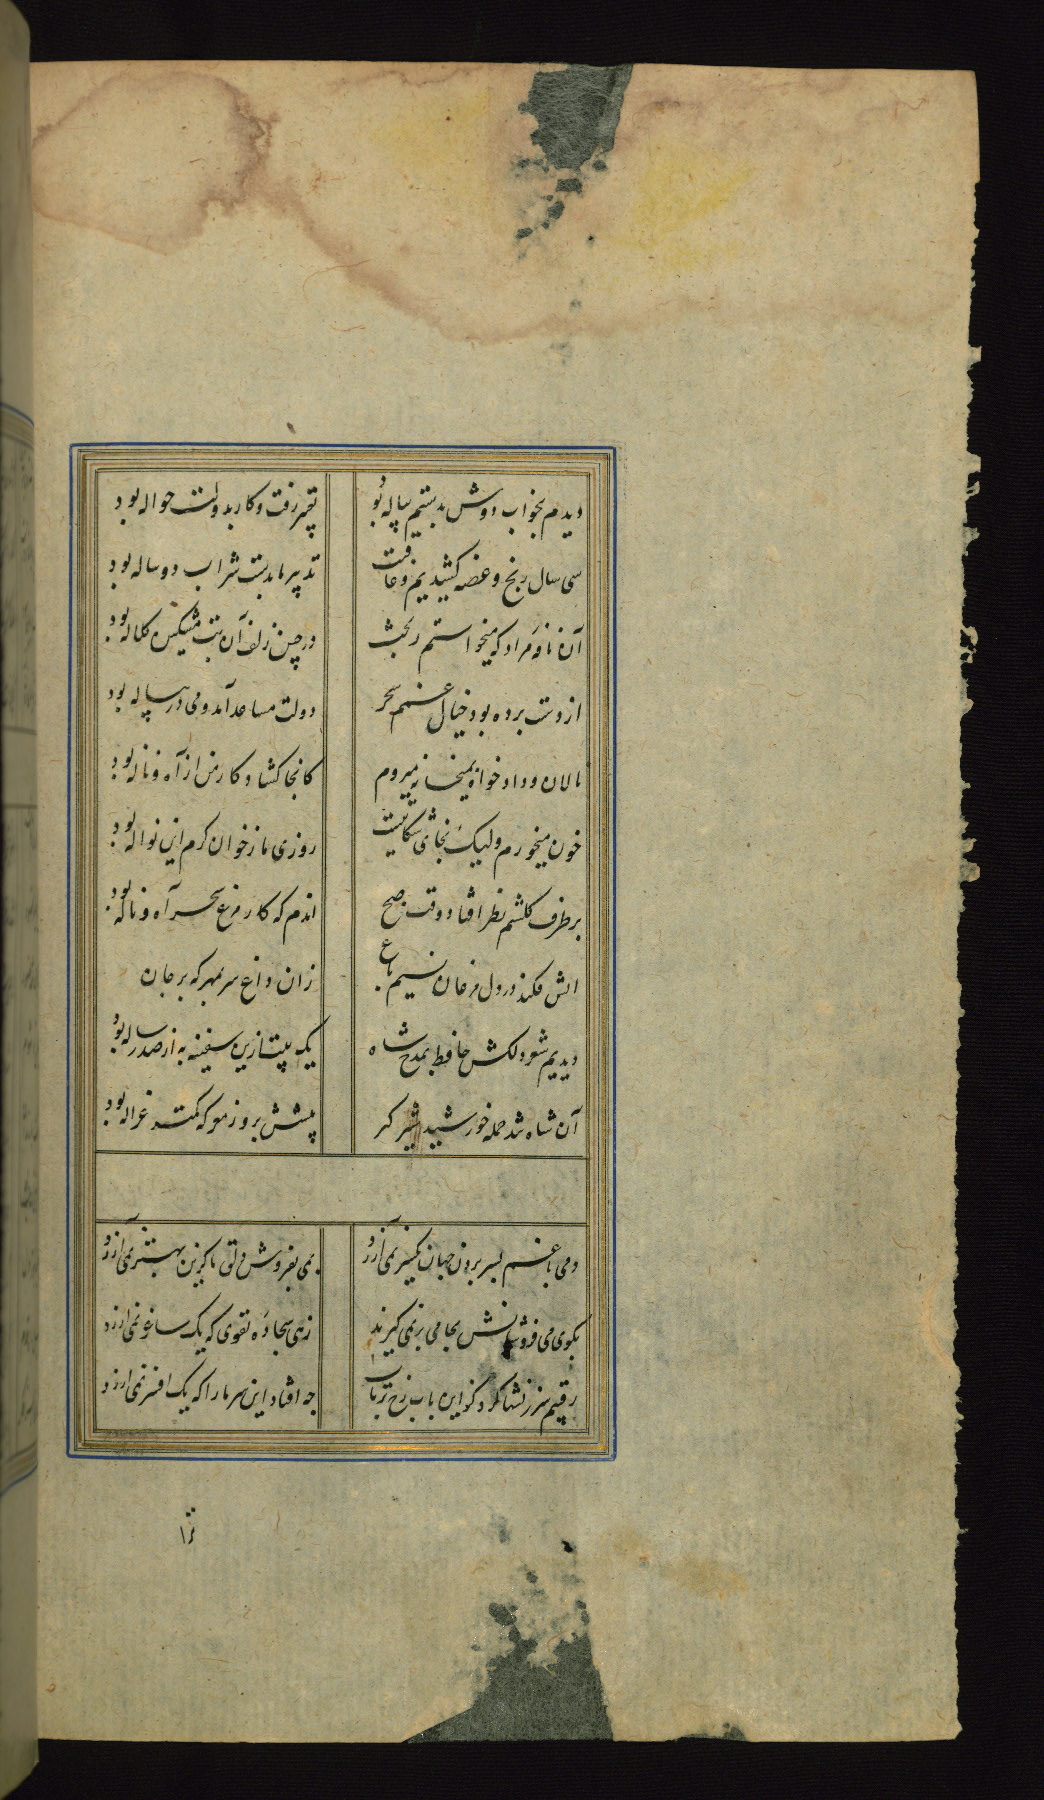 دیدم بخواب دوش بدستم پیاله بود تعبیر رفت و کار بدولت حواله بود
سی سال رنج و غصه کشیدیم و عاقبت تدبیر ما بدست شراب دو ساله بود
آن نافه مراد که میخواستم ز بخت در چین زلف آن بت مشکین کلاله بود
از دست برده بود خیال غمم سحر دولت مساعد آمد و می در پیاله بود
نالان و دادخواه بمیخانه میروم کانجا کشاد کار من از آه و ناله بود
خون میخورم ولیک نجای شکایت روزی ما ز خوان کرم این نواله بود
بر طرف کلشنم نظر افتاد وقت صبح اندم که کار مرغ سحر آه و ناله بود
اتش فکند در دل مرغان نسیم باغ زان داغ سر بمهر که بر جان
دیدیم شعر دلکش حافظ بمدح شاه یک بیت ازین سفینه به از صد رساله بود
آن شاه تند حمله خورشید شیر کیر پیشش بروز معرکه کمتر غزاله بود
دمی با غم بسر بردن جهان یکسر نمی ارزد بمی بفروش دلق ما کزین بهتر نمی ارزد
بکوی می فروشانش بجامی بر نمی کیرند زهی سجاده تقوی که یک ساغر نمی ارزد
رقیبم سرزنشها کرد کز این باب رخ برتاب چه افتاد این سر ما را که یک افسر نمی ارزد